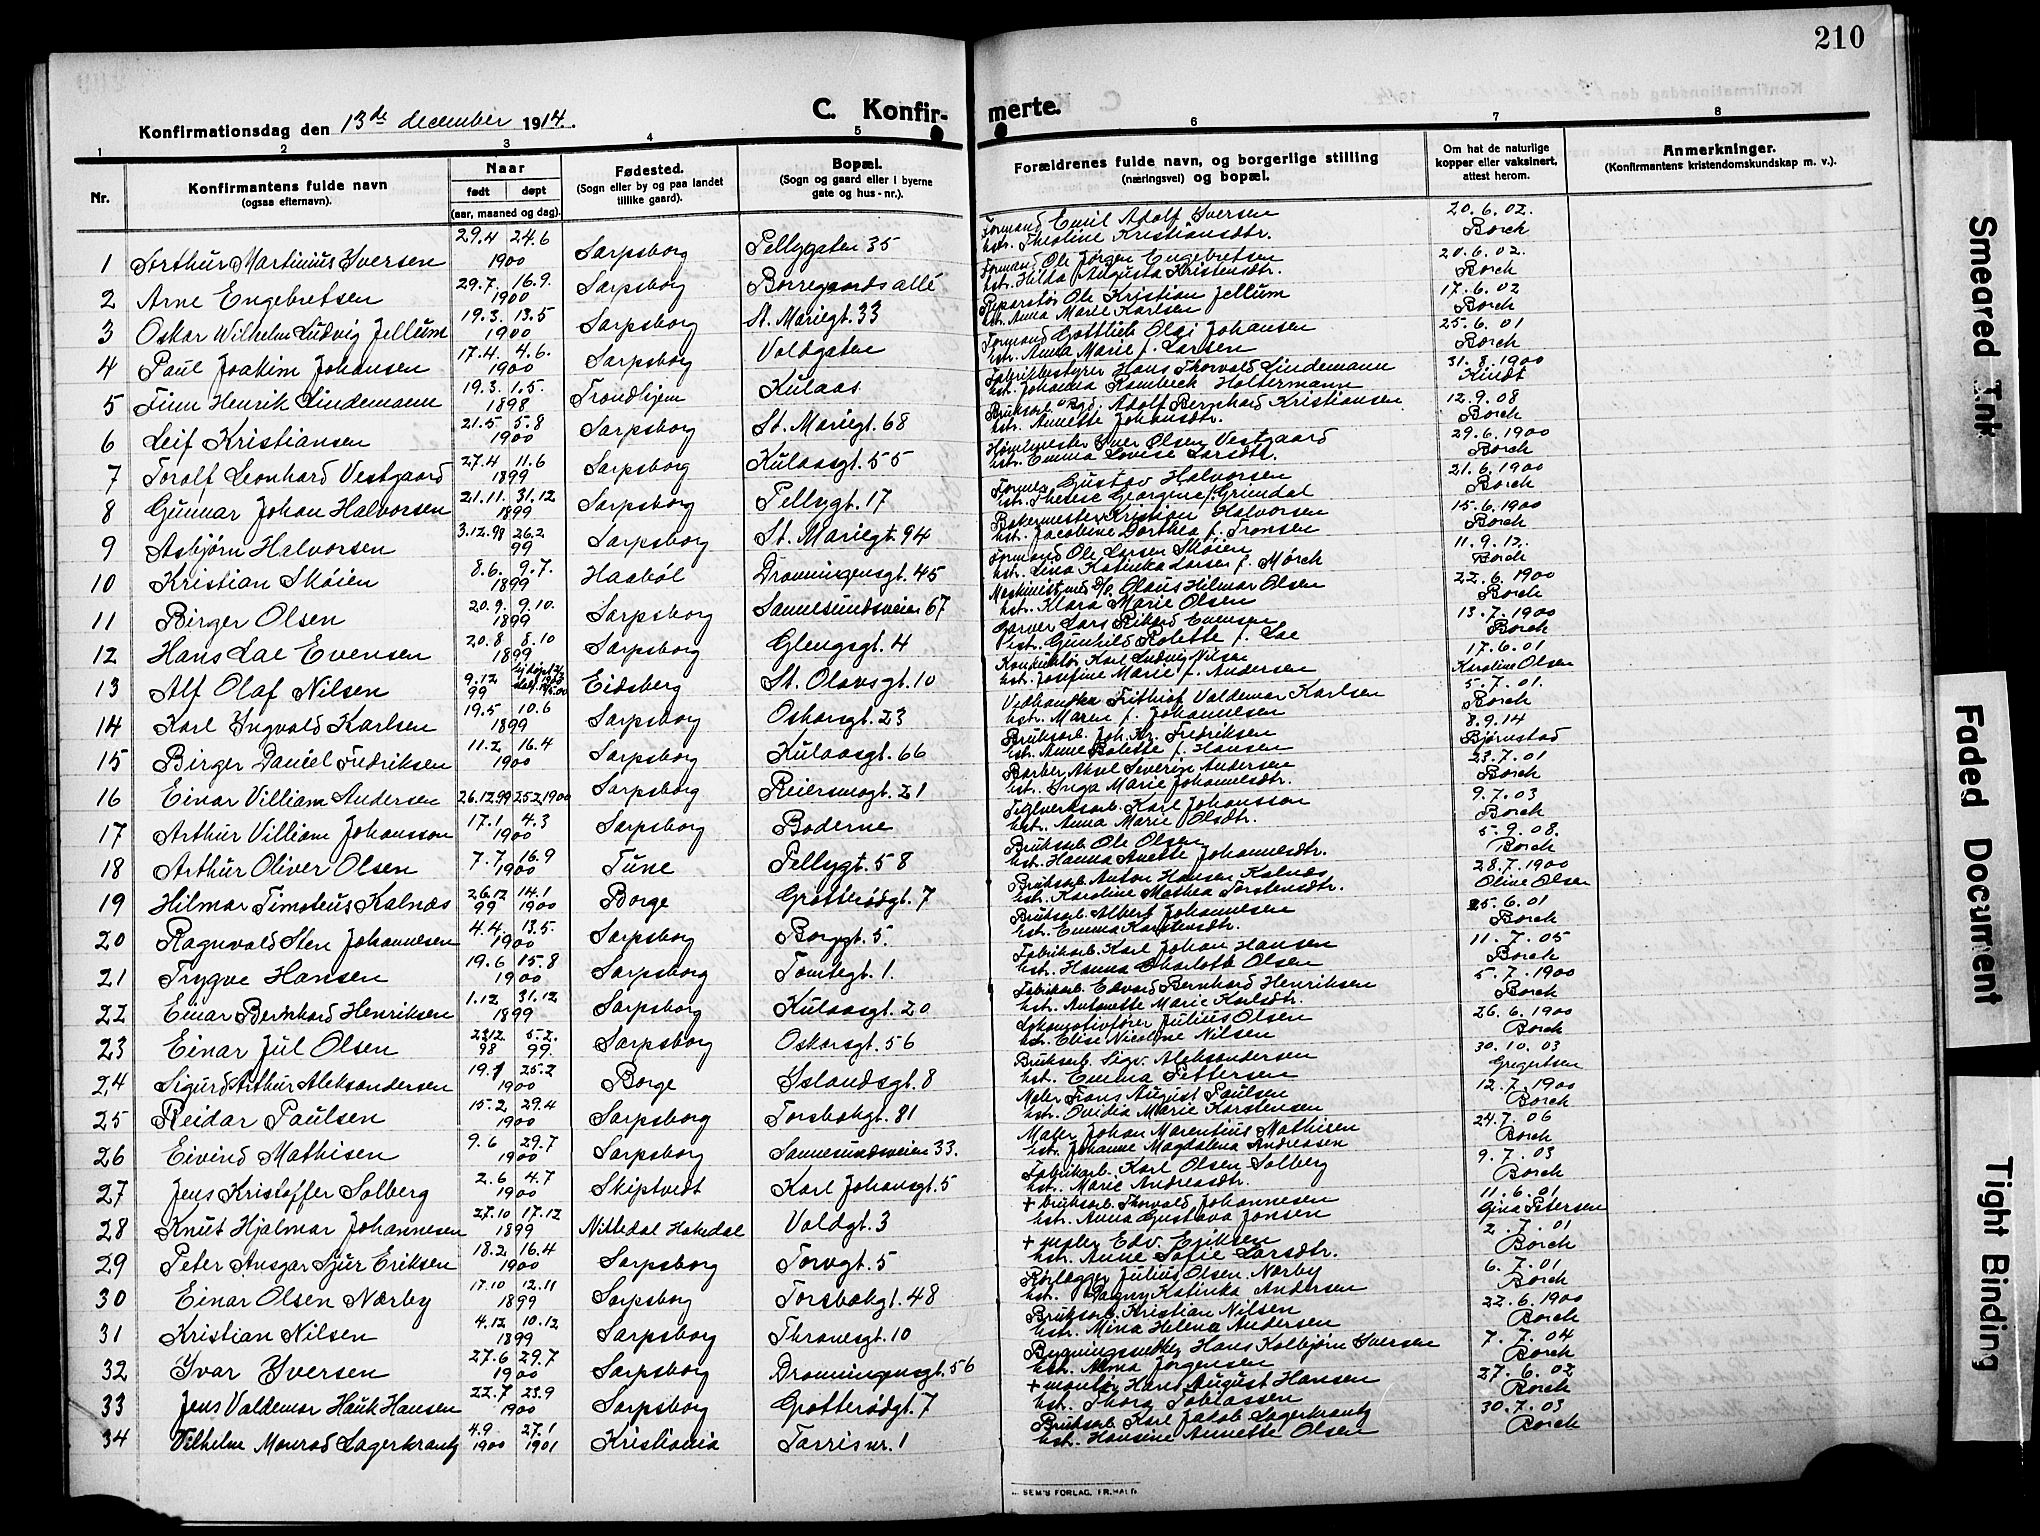 210
Konfirmationsdag den 13de december 1914.
C. Konfirmerte.
1 2 3 4 5 6 7 8
Nr.
Konfirmantens fulde navn
(ogsaa efternavn).
Naar
født døpt
(aar, maaned og dag).
Fødested.
(Sogn eller by og paa landet
tillike gaard).
Bopæl.
(Sogn og gaard eller i byerne
gate og hus-nr.).
Forældrenes fulde navn, og borgerlige stilling
(næringsvei) og bopæl.
Om hat de naturlige
kopper eller vaksinert,
attest herom.
Anmerkninger.
(Konfirmantens kristendomskundskap m. v.).
1 Arthur Martinius Iversen 29.4 24.6 1900 Sarpsborg Pellygaten 35 Formand Emil Adolf Iversen hstr. Theoline Kristiansdtr. 20.6.02. Borch
2 Arne Engebretsen 29.7. 16.9. 1900 Sarpsborg Borregaards allé Formand Ole Jørgen Engebretsen hstr. Hilda Augusta Kristensdtr. 20.6.02. Borch
3 Oskar Wilhelm Ludvig Jellum 19.3. 13.5 1900 Sarpsborg St. Mariegt. 33 Ole Kristian Jellum hstr. Anna Marie Karlsen 17.6.02 Borch
4 Paul Joakim Johansen 17.4. 4.6. 1900 Sarpsborg Voldgaten Formand Gottlieb Olai Johansen hstr. Anna Marie f. Larsen 25.6.01 Borch
5 Finn Henrik Lindemann 19.3. 1.5. 1898 Trondhjem Kulaas Fabrikbestyrer Hans Thorvald Lindemann hstr. Johanna Rambech Holtermann 31.8.1900 Kindt
6 Leif Kristiansen 21.5 5.8 1900 Sarpsborg St. Mariegt. 68 Bruksarb. Adolf Bernhard Kristiansen hstr. Annette Johansdtr. 12.9.08 Borch
7 Toralf Leonhard Vestgaard 27.4 11.6 1899 Sarpsborg Kulaasgt. 55 Høvlmester Iver Olsen Vestgaard hstr. Emma Lovise Larsdtr. 29.6.1900 Borch
8 Gunnar Johan Halvorsen 21.11. 31.12 1899 Sarpsborg Pellygt. 17 Former Gustav Halvorsen hstr. Therese Georgine f. Grimdal 21.6.1900 Borch
9 Asbjørn Halvorsen 3.12.98 26.2 99 Sarpsborg St. Mariegt. 94 Bakermester Kristian Halvorsen hstr. Jacobine Dorthea f. Tronsen 15.6.1900 Borch
10 Kristian Skøien 8.6. 9.7. 1899 Haabøl Dronningensgt. 45 Formand Ole Larsen Skøien hstr. Lina Katinka Larsen f. Mørch 11.9.12. Borch
11 Birger Olsen 20.9. 9.10. 1899 Sarpsborg Sannesundsveien 67 Maskinist Olaus Hilmar Olsen hstr. Klara Marie Olsen 22.6.1900 Borch
12 Hans Lae Evensen 20.8 8.10 1899 Sarpsborg Glengsgt. 4 Garver Lars Rikard Evensen hstr. Gunhild Rolette f. Lae 13.7.1900 Borch
13 Alf Olaf Nilsen 9.12 99 Eidsberg St. Olavsgt. 10 Konduktør Karl Ludvig Nilsen hstr. Josefine Marie f. Andersen 17.6.01 Karoline Olsen
14 Karl Ingvald Karlsen 19.5 10.6 1899 Sarpsborg Oskarsgt. 23 Vedhandler Frithiof Valdemar Karlsen hstr. Maren f. Johannesen 5.7.01. Borch
15 Birger Daniel Fredriksen 11.2 16.4 1900 Sarpsborg Kulaasgt. 66 Bruksarb. Joh. Kr. Fredriksen hstr. Anne Bolette f. Hansen 8.9.14 Bjørnstad
16 Einar Villiam Andersen 26.12.99 25.2.1900 Sarpsborg Reiersensgt. 21 Barber Aksel Severin Andersen hstr. Inga Marie Johannesdtr. 23.7.01 Borch
17 Arthur Villiam Johansson 17.1. 4.3 1900 Sarpsborg Boderne Teglverksarb. Karl Johansson hstr. Anna Marie Olsdtr. 9.7.03 Borch
18 Arthur Oliver Olsen 7.7 16.9 1900 Tune Pellygt. 58 Bruksarb. Ole Olsen hstr. Hanna Anette Johannesdtr. 5.9.08. Borch
19 Hilmar Timoteus Kalnæs 26.12 99 14.1 1900 Borge Grotterødgt. 7 Bruksarb. Anton Hansen Kalnæs hstr. Karoline Mathea Torstensdtr. 28.7.1900 Olive Olsen
20 Ragnvald Sten Johannesen 4.4. 13.5. 1900 Sarpsborg Borggt. 5. Bruksarb. Albert Johannesen hstr. Emma Karstensdtr. 25.6.01 Borch
21 Trygve Hansen 19.6 15.8 1900 Sarpsborg Tomtegt. 1. Fabrikarb. Karl Johan Hansen hstr. Hanna Charlotte Olsen 11.7.05 Borch
22 Einar Bernhard Henriksen 1.12 31.12 1899 Sarpsborg Kulaasgt. 20 Fabrikarb. Edvard Bernhard Henriksen hstr. Antonette Marie Karlsdtr. 5.7.1900 Borch
23 Einar Jul Olsen 22.12. 98 5.2. 99. Sarpsborg Oskarsgt. 56 Lokomotivfører Julius Olsen hstr. Elise Nicoline Nilsen 26.6.1900 Borch
24 Sigurd Arthur Aleksandersen 19.1 25.2 1900 Borge Islandsgt. 8 Bruksarb. Sigv. Aleksandersen hstr. Emma Pettersen 30.10.03 Gregertsen
25 Reidar Paulsen 15.2 29.4 1900 Sarpsborg Torsbakgt. 81 Maler Frans August Paulsen hstr. Ovidia Marie Karstensen 12.7.1900 Borch
26 Eivind Mathisen 9.6 29.7 1900 Sarpsborg Sannesundsveien 33. Maler Johan Marentius Mathisen hstr. Johanne Magdalena Andreasen 24.7.06 Borch
27 Jens Kristoffer Solberg 2.6 4.7 1900 Skiptvedt Karl Johansgt. 5 Fabrikarb. Karl Olsen Solberg hstr. Marie Andreasdtr. 9.7.03 Borch
28 Knut Hjalmar Johannesen 27.10 17.12 1899 Nittedal Hakedal Voldgt. 3 + bruksarb. Thorvald Johannesen hstr. Anna Gustava Jonsen 11.6.01 Gina Petersen
29 Peter Ansgar Sjur Eriksen 18.2 16.4 1900 Sarpsborg Torvgt. 5 + maler Edv. Eriksen hstr. Anne Sofie Larsdtr. 2.7.01 Borch
30 Einar Olsen Nærby 17.10 12.11 1899 Sarpsborg Torsbakgt. 48 Rørlægger Julius Olsen Nærby hstr. Dagny Katinka Andersen 6.7.01 Borch
31 Kristian Nilsen 4.12 10.12 1899 Sarpsborg Thronesgt. 10 Bruksarb. Kristian Nilsen hstr. Mina Helena Andersen 22.6.1900 Borch
32 Ivar Iversen 27.6 29.7 1900 Sarpsborg Dronningensgt. 56 Hans Kolbjørn Iversen hstr. Alma Jørgensen 7.7.04 Borch
33 Jens Valdemar Hauk Hansen 22.7 23.9 1900 Sarpsborg Grotterødgt. 7 + montør Hans August Hansen hstr. Thora Tobiassen 27.6.02 Borch
34 Vilhelm Monrad Lagerkrantz 4.9 1900 27.1 1901 Kristiania Tarris nr. 1 Bruksarb. Karl Jakob Lagerkrantz hstr. Hansine Annette Olsen 30.7.03 Borch
SEM'S FORLAG, FR.HALD
Smeared Ink
Faded Document
Tight Binding